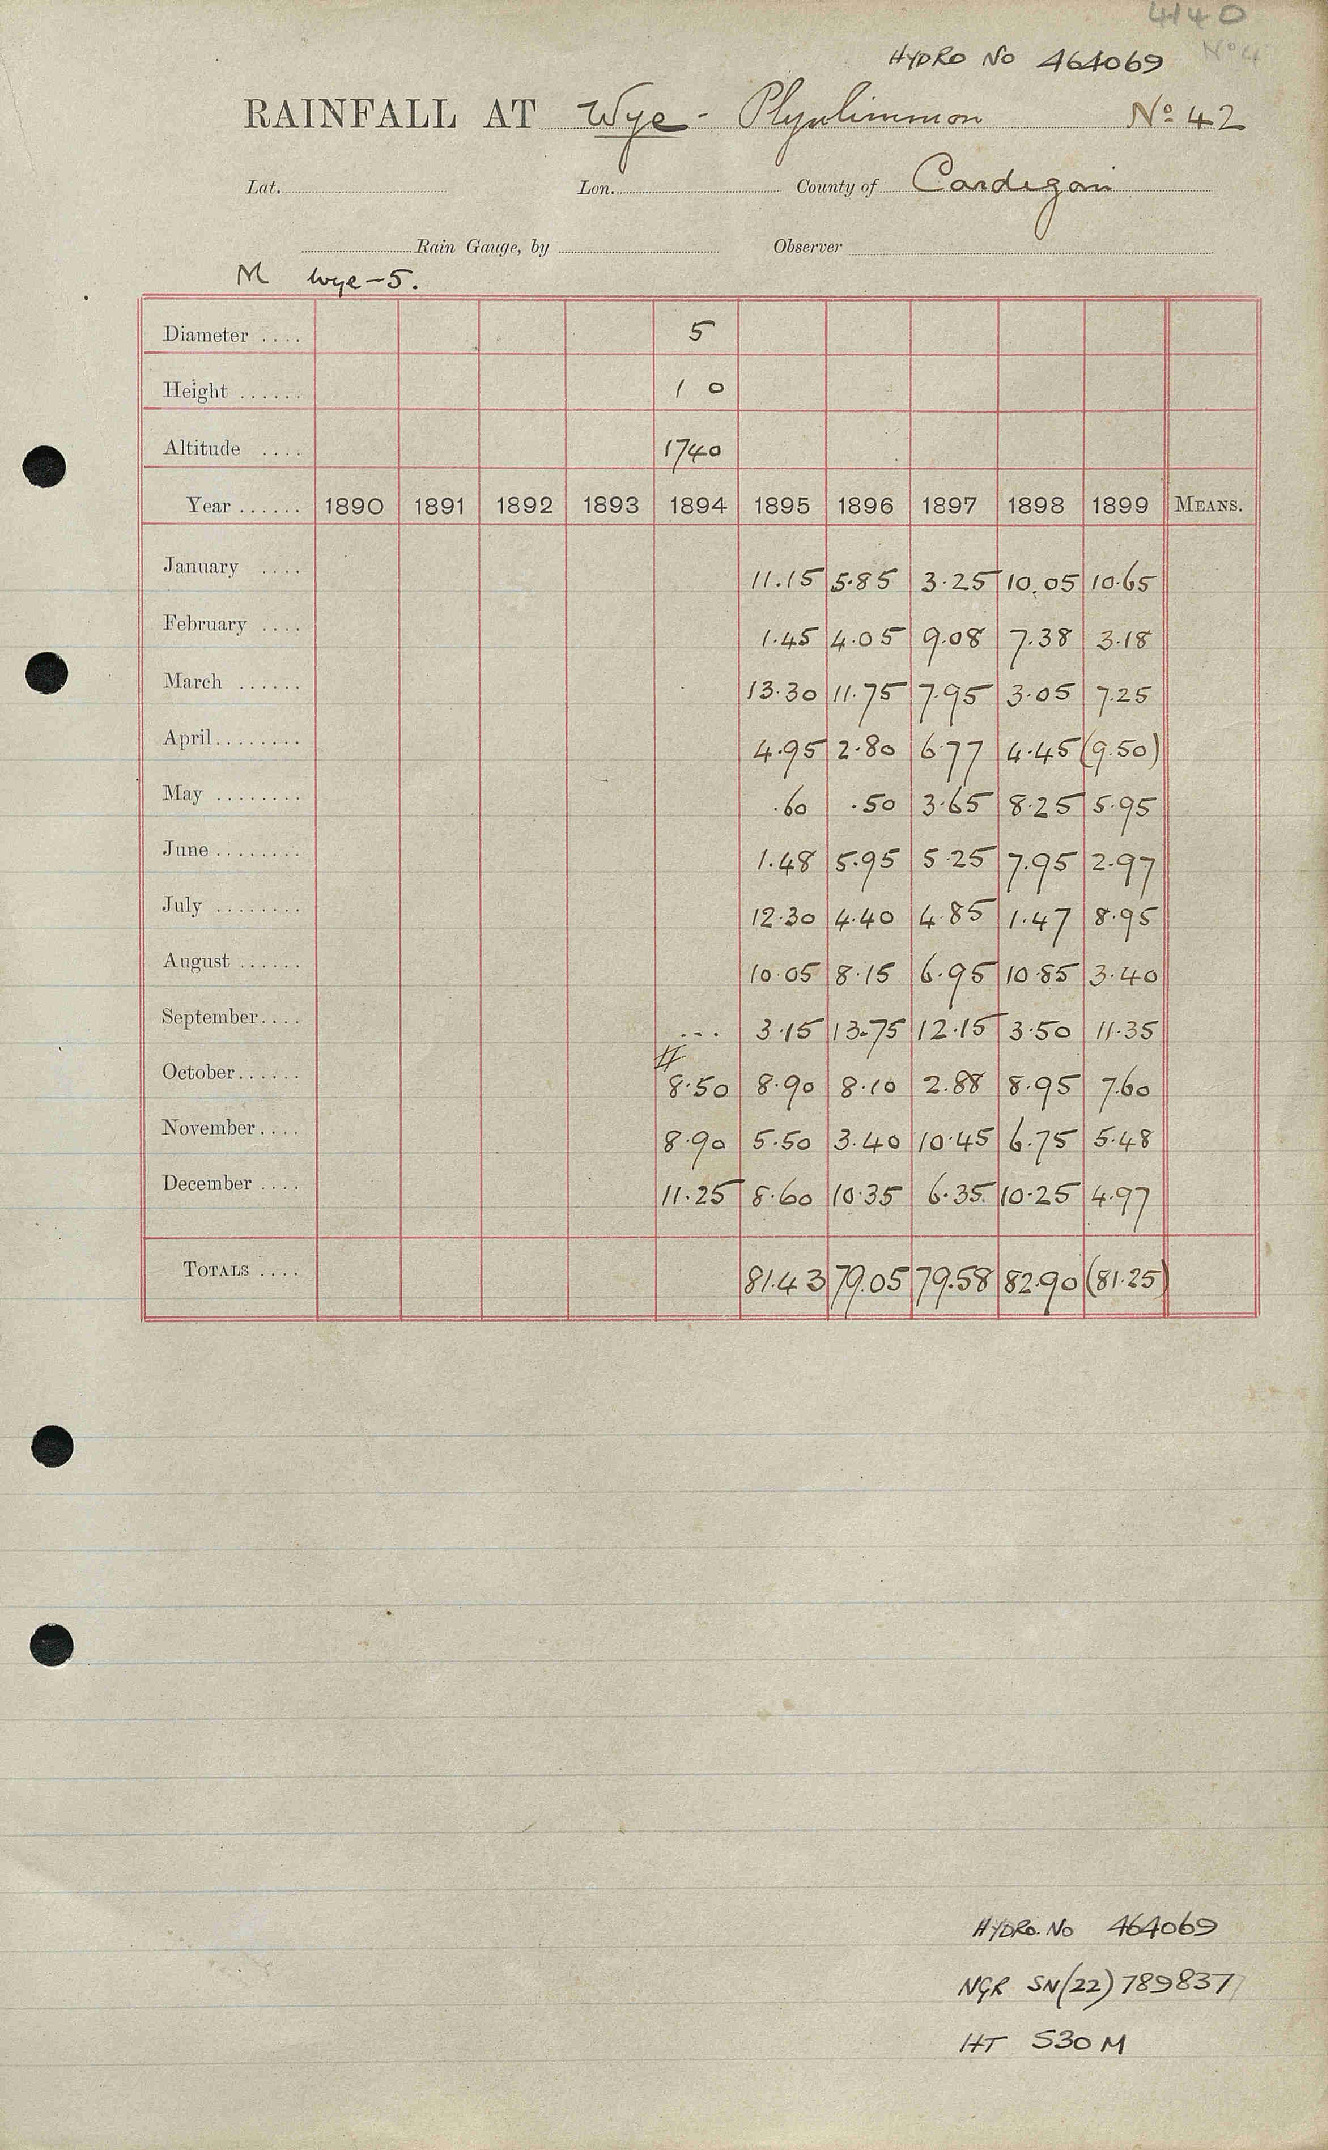 4140
HYDRO No 464069 No 4
RAINFALL AT Wye - Plynlimmon No 42
Lat. Lon. County of Cardigan
Rain Gauge, by Observer
M Wye-5.
Diameter .... 5
Height ...... 1 0
Altitude .... 1740
Year ...... 1890 1891 1892 1893 1894 1895 1896 1897 1898 1899 MEANS.
January .... 11.15 5.85 3.25 10.05 10.65
February .... 1.45 4.05 9.08 7.38 3.18
March ...... 13.30 11.75 7.95 3.05 7.25
April........ 4.95 2.80 6.77 4.45 (9.50)
May ........ .60 .50 3.65 8.25 5.95
June ........ 1.48 5.95 5.25 7.95 2.97
July ........ 12.30 4.40 4.85 1.47 8.95
August ...... 10.05 8.15 6.95 10.85 3.40
September.... ... 3.15 13.75 12.15 3.50 11.35
October...... # 8.50 8.90 8.10 2.88 8.95 7.60
November.... 8.90 5.50 3.40 10.45 6.75 5.48
December .... 11.25 8.60 10.35 6.35 10.25 4.97
TOTALS .... 81.43 79.05 79.58 82.90 (81.25)
HYDRO. No 464069
NGR SN(22) 789837
HT 530 M